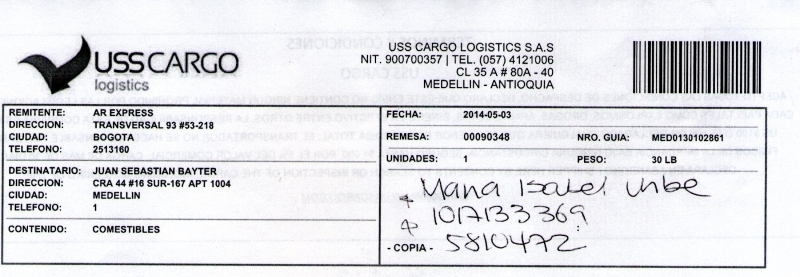 USS CARGO
logistics
USS CARGO LOGISTICS S.A.S
NIT. 900700357 | TEL. (057) 4121006
CL 35 A # 80A - 40
MEDELLIN - ANTIOQUIA
REMITENTE: AR EXPRESS
DIRECCION: TRANSVERSAL 93 #53-218
CIUDAD: BOGOTA
TELEFONO: 2513160
DESTINATARIO: JUAN SEBASTIAN BAYTER
DIRECCION: CRA 44 #16 SUR-167 APT 1004
CIUDAD: MEDELLIN
TELEFONO: 1
CONTENIDO: COMESTIBLES
FECHA: 2014-05-03
REMESA: 00090348 NRO. GUIA: MED0130102861
UNIDADES: 1 PESO: 30 LB
Maria Isabel Uribe
1017133369
- COPIA - 5810472